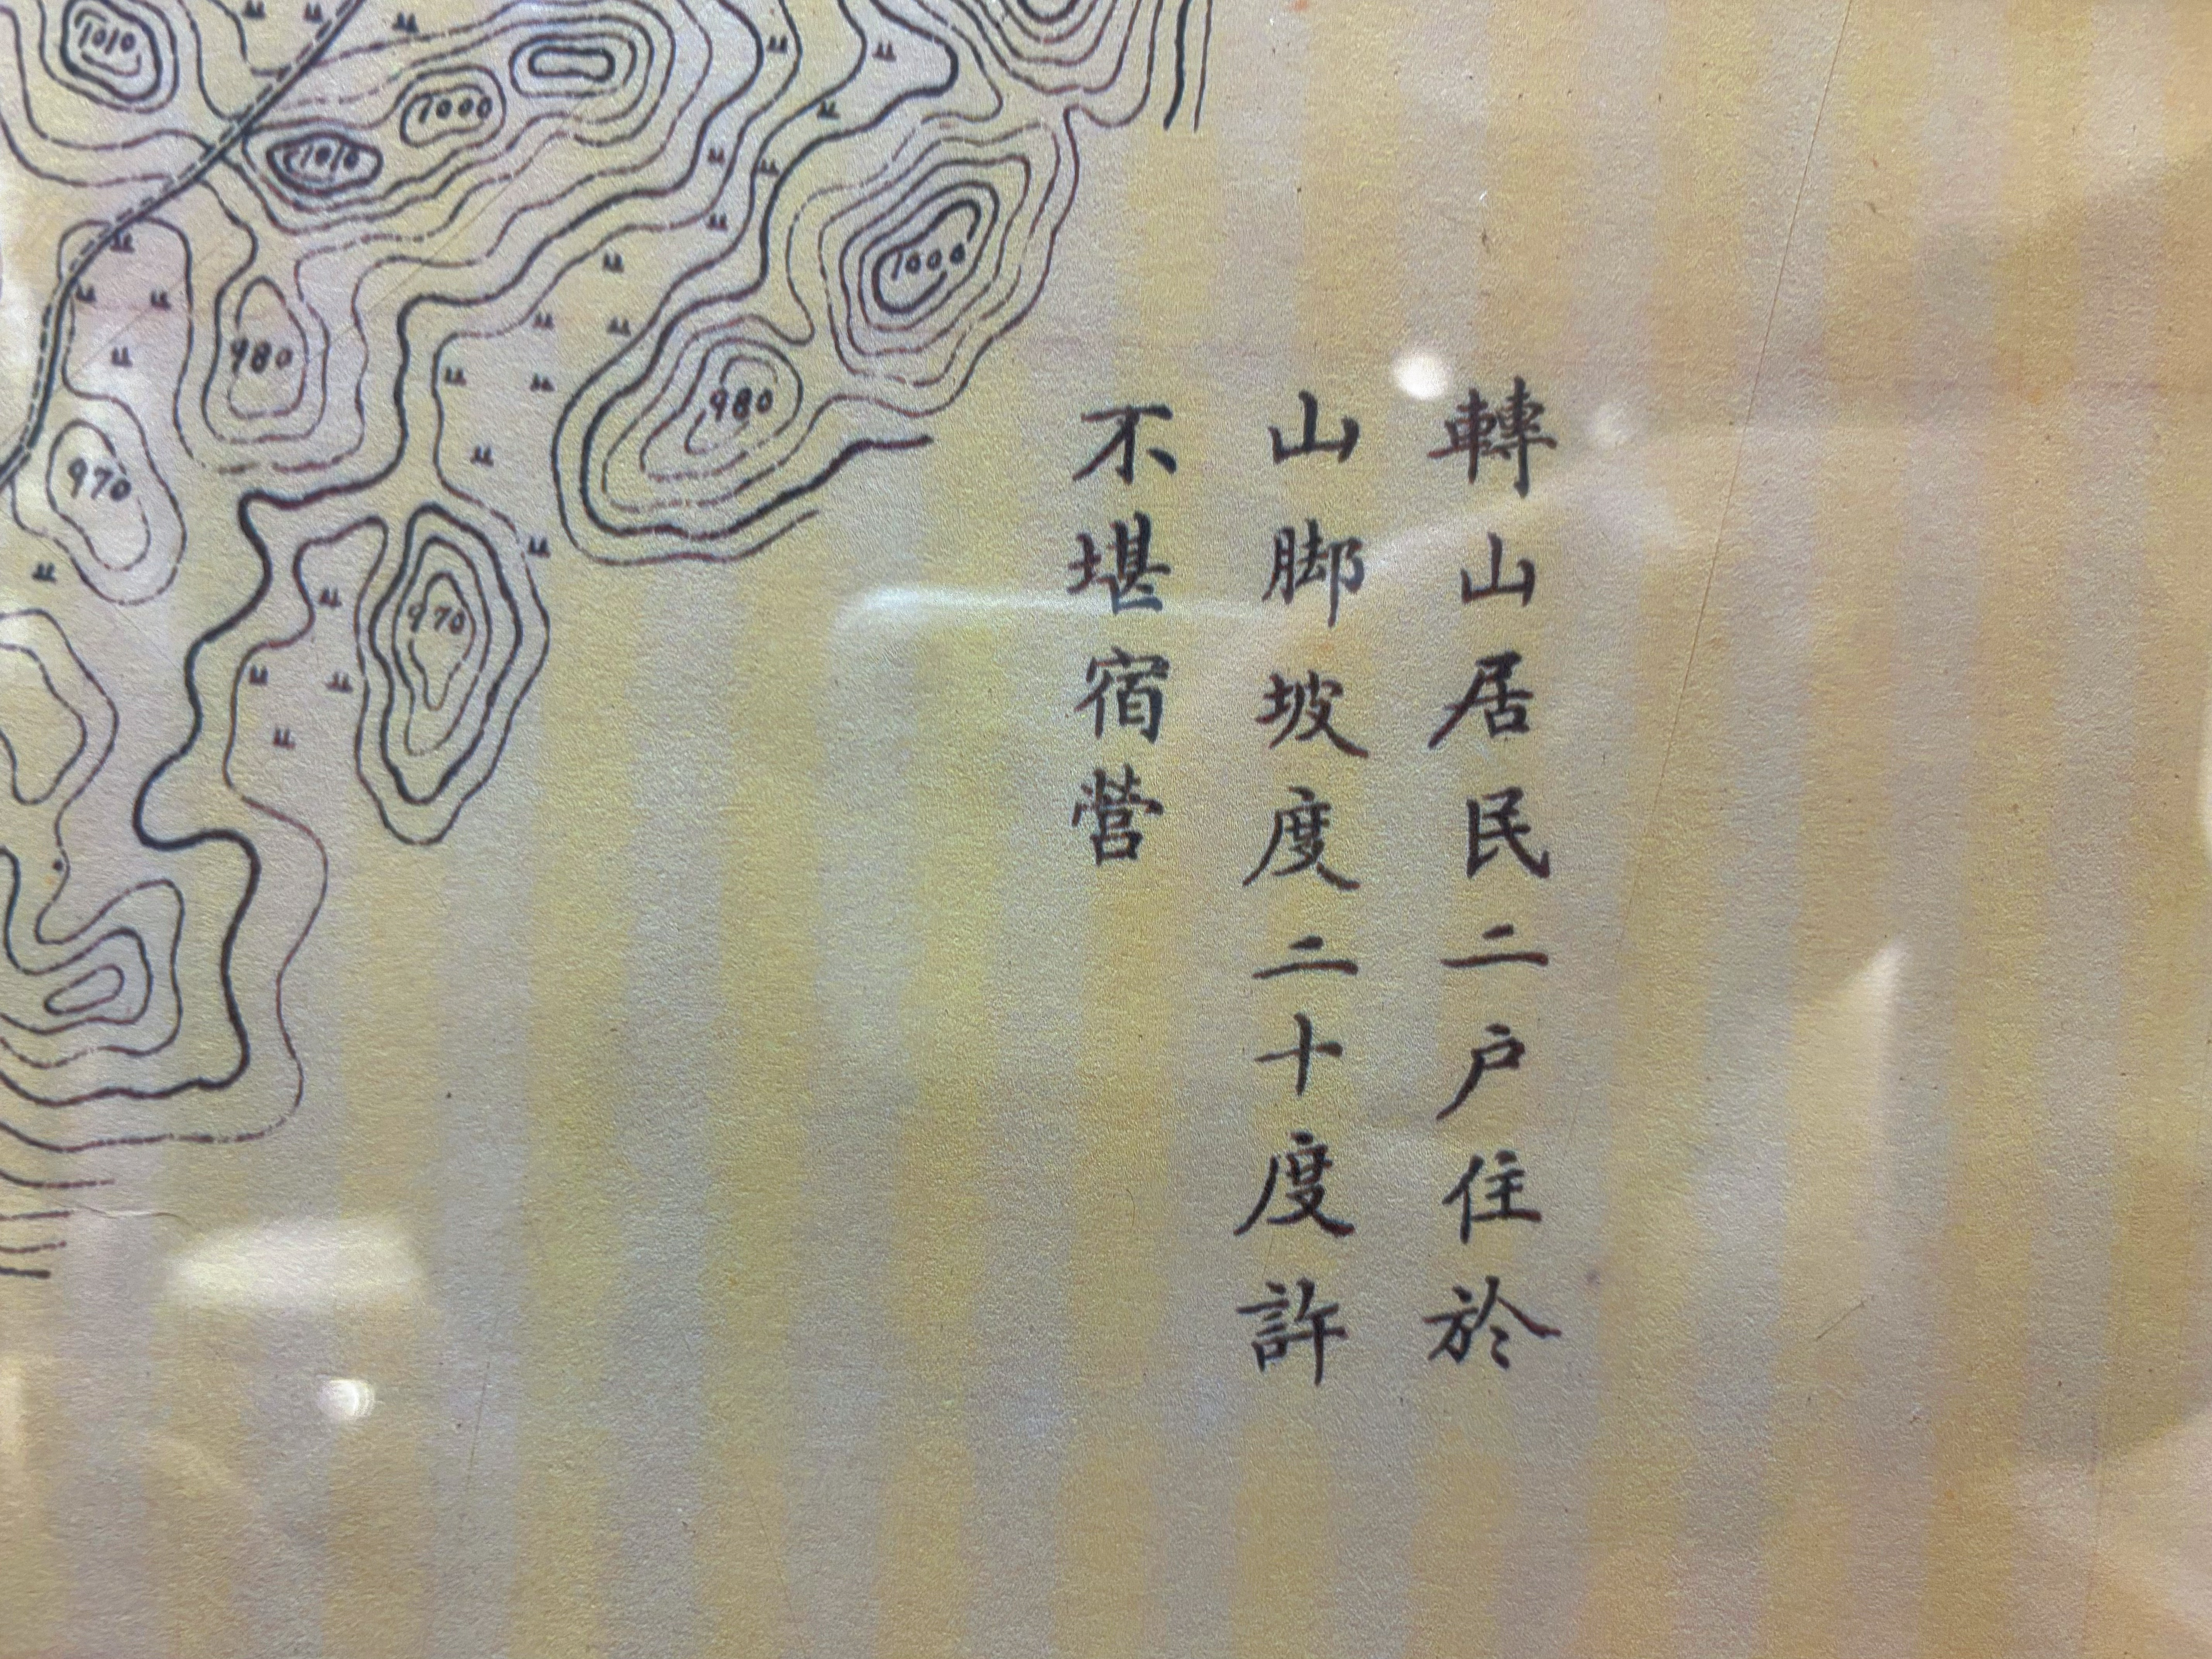 轉山居民二户住於
山脚坡度二十度許
不堪宿营
1010
1000
1010
1000
980
980
970
970